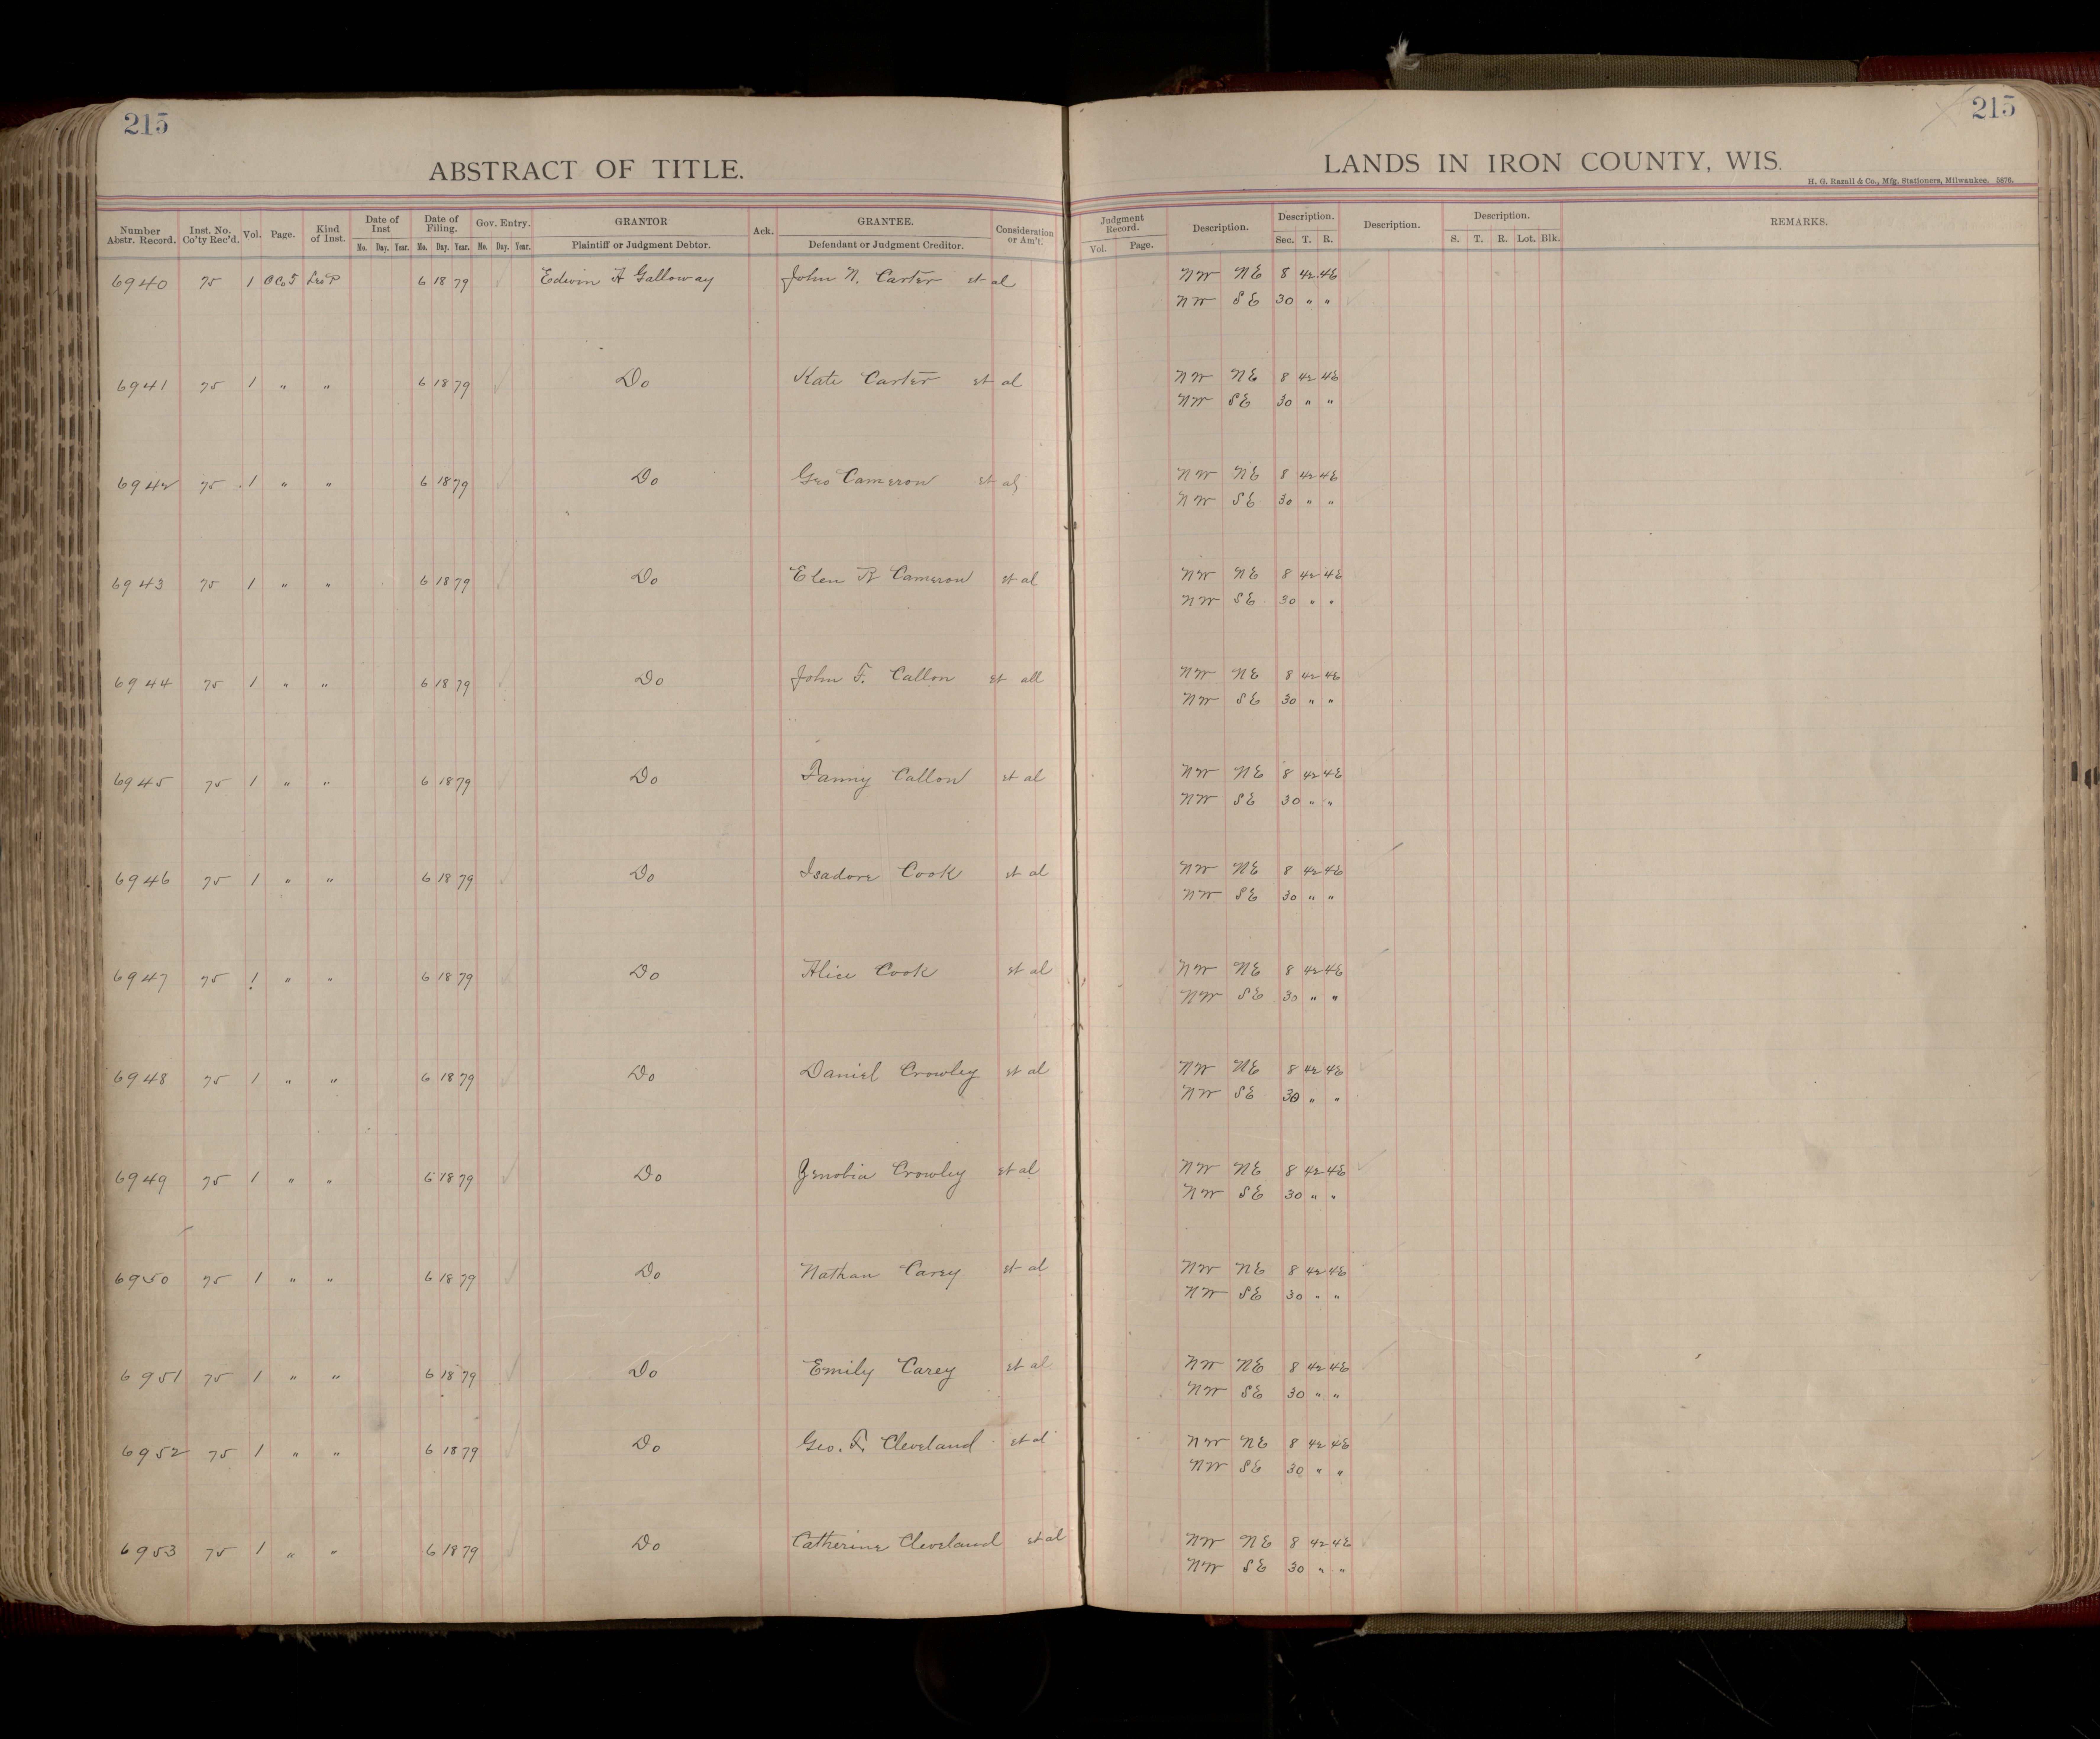 215
215
ABSTRACT OF TITLE.
LANDS IN IRON COUNTY, WIS.
H. G. Razall & Co., Mfg. Stationers, Milwaukee. 5876.
Number Abstr. Record. Inst. No. Co'ty Rec'd. Vol. Page. Kind of Inst. Date of Inst Date of Filing. Gov. Entry. GRANTOR Ack. GRANTEE. Consideration or Am't. Judgment Record. Description. Description. Description. Description. REMARKS.
Mo. Day. Year. Mo. Day. Year. No. Day. Year. Plaintiff or Judgment Debtor. Defendant or Judgment Creditor. Vol. Page. Sec. T. R. S. T. R. Lot. Blk.
6940 75 1 6 18 79 Edwin H Galloway John N. Carter et al NW NE 8 42 4E
NW SE 30 " "
6941 75 1 " " 6 18 79 Do Kate Carter et al NW NE 8 42 4E
NW SE 30 " "
6942 75 1 " " 6 18 79 Do Geo Cameron et al NW NE 8 42 4E
NW SE 30 " "
6943 75 1 " " 6 18 79 Do Elen R Cameron et al NW NE 8 42 4E
NW SE 30 " "
6944 75 1 " " 6 18 79 Do John F. Callon et all NW NE 8 42 4E
NW SE 30 " "
6945 75 1 " " 6 18 79 Do Fanny Callon et al NW NE 8 42 4E
NW SE 30 " "
6946 75 1 " " 6 18 79 Do Isadore Cook et al NW NE 8 42 4E
NW SE 30 " "
6947 75 1 " " 6 18 79 Do Alice Cook et al NW NE 8 42 4E
NW SE 30 " "
6948 75 1 " " 6 18 79 Do Daniel Crowley et al NW NE 8 42 4E
NW SE 30 " "
6949 75 1 " " 6 18 79 Do Zenobia Crowley et al NW NE 8 42 4E
NW SE 30 " "
6950 75 1 " " 6 18 79 Do Nathan Carey et al NW NE 8 42 4E
NW SE 30 " "
6951 75 1 " " 6 18 79 Do Emily Carey et al NW NE 8 42 4E
NW SE 30 " "
6952 75 1 " " 6 18 79 Do Geo. F. Cleveland et al NW NE 8 42 4E
NW SE 30 " "
6953 75 1 " " 6 18 79 Do Catherine Cleveland et al NW NE 8 42 4E
NW SE 30 " "